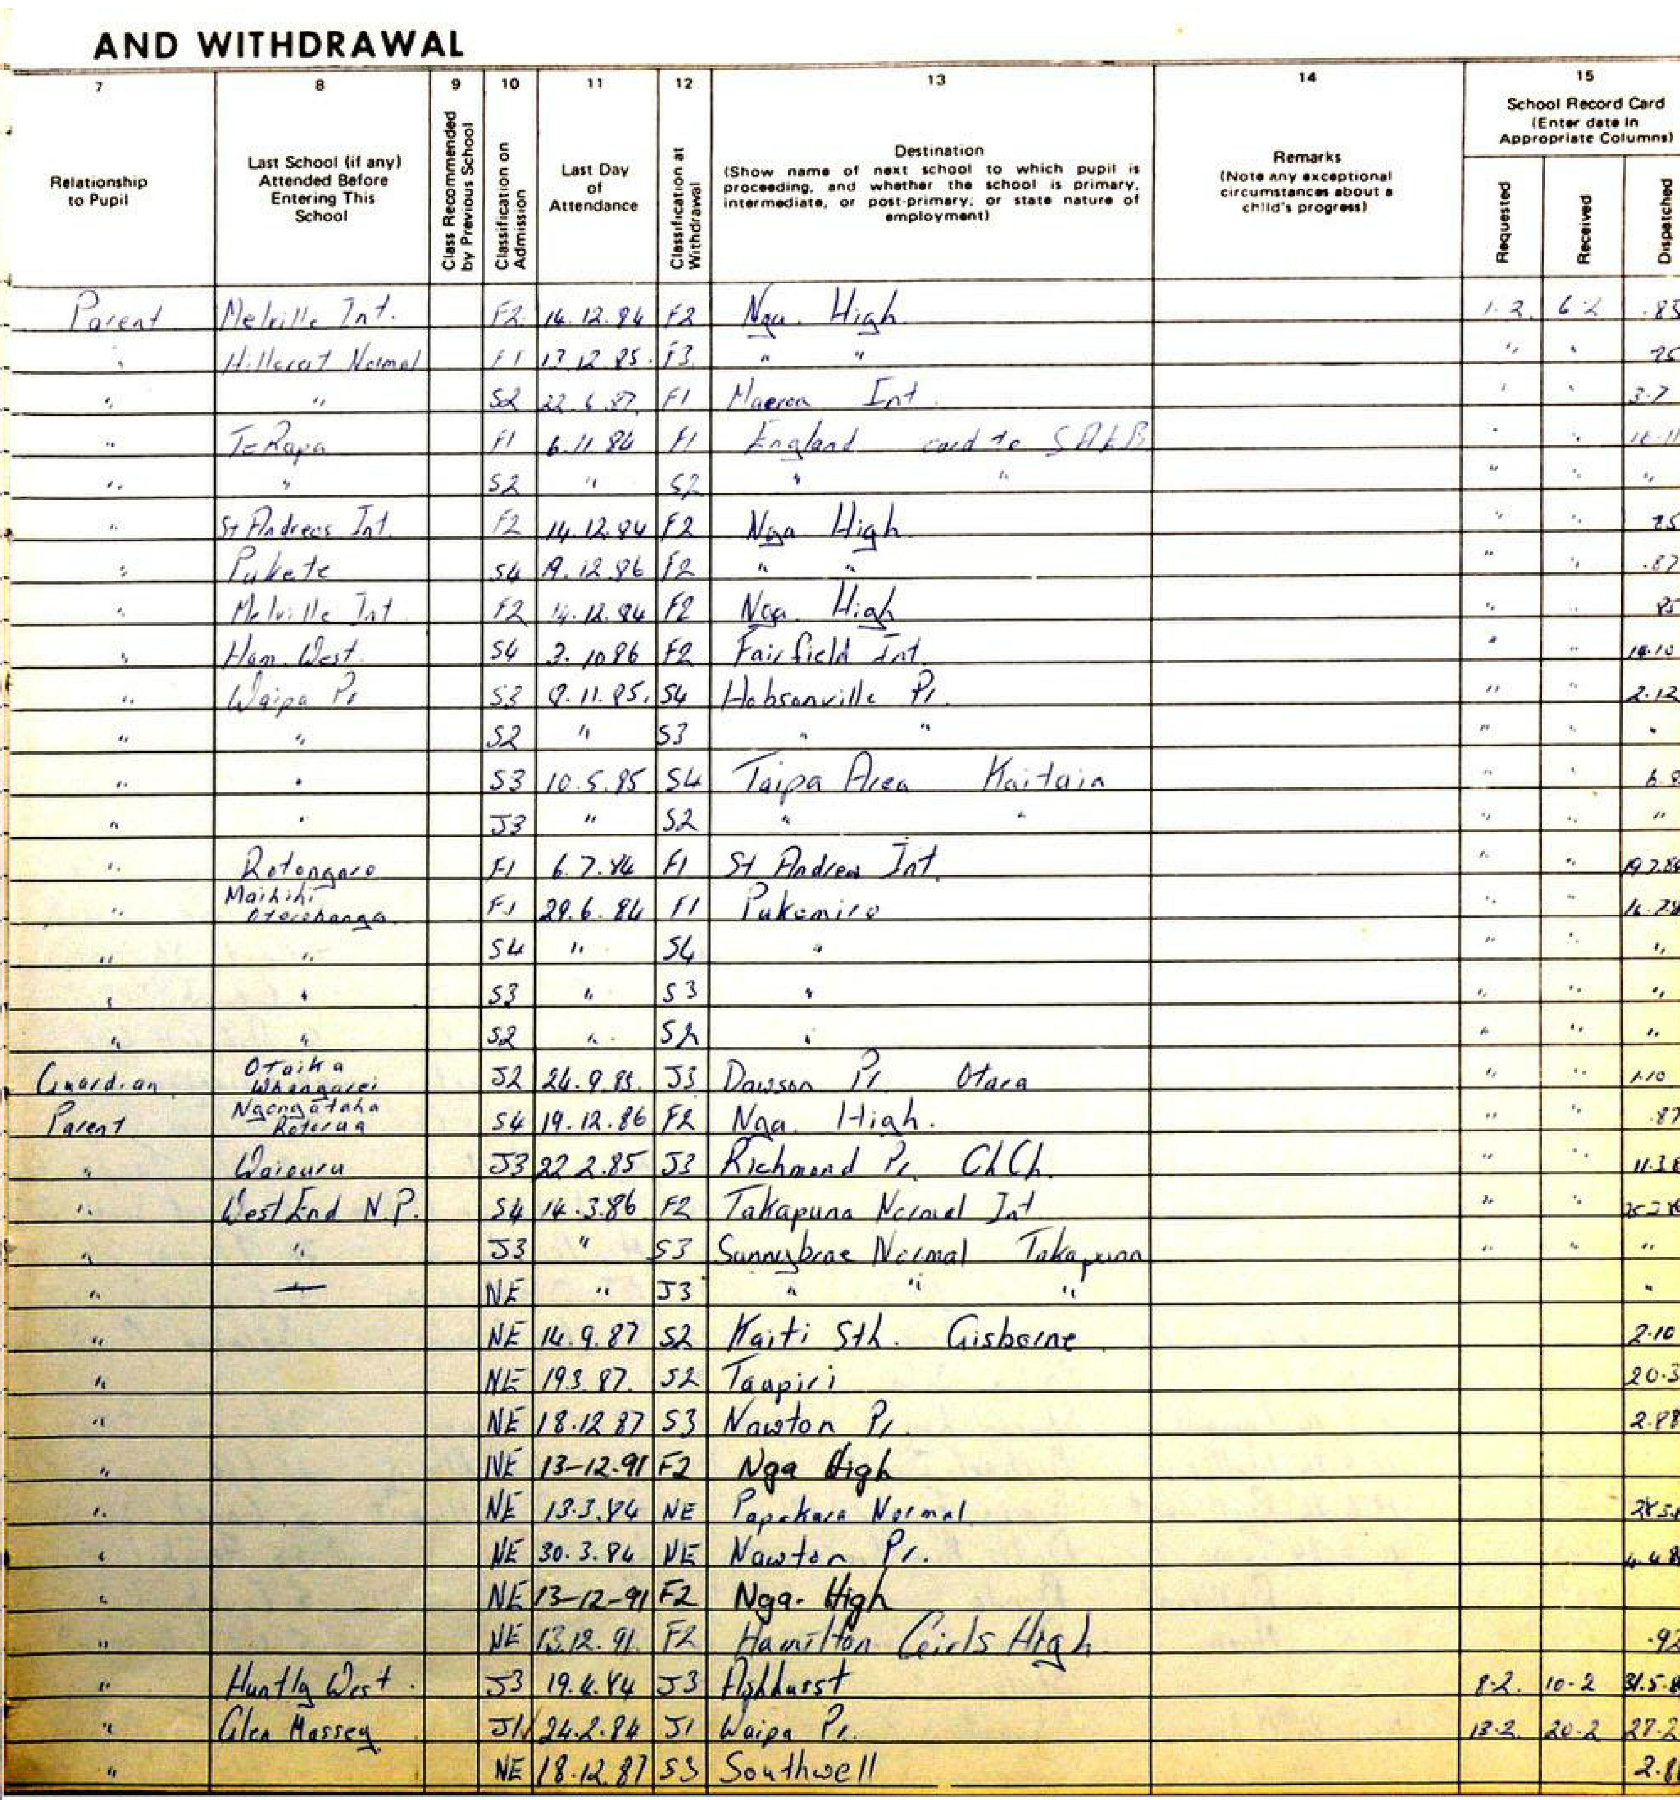 AND WITHDRAWAL
7 8 9 10 11 12 13 14 15
Relationship to Pupil
Last School (if any) Attended Before Entering This School
Class Recommended by Previous School
Classification on Admission
Last Day of Attendance
Classification at Withdrawal
Destination
(Show name of next school to which pupil is
proceeding, and whether the school is primary,
intermediate, or post-primary; or state nature of
employment)
Remarks
(Note any exceptional
circumstances about a
child's progress)
School Record Card
(Enter date in
Appropriate Columns)
Requested Received Dispatched
Parent Melville Int. F2 14.12.84 F2 Nga. High 1.2. 6.2 .85
" Hillcrest Normal F1 13.12.85. F3 " " " " 
" " S2 22.6.87. F1 Maeroa Int. " " 3.7
" Te Rapa F1 6.11.84 F1 England card to " "
" " S2 " S2 " " " " "
" St Andrews Int. F2 14.12.84 F2 Nga High " " 85
" Pukete S4 19.12.86 F2 " " " " .87
" Melville Int F2 14.12.84 F2 Nga. High " " 85
" Ham. West. S4 3.10 86 F2 Fairfield Int. " " 14.10
" Waipa Pr S3 8.11.85. S4 Hobsonville Pr. " " 2.12
" " S2 " S3 " " " " "
" " S3 10.5.85 S4 Taipa Area Kaitaia " " 6.8
" " J3 " S2 " " " " "
" Rotongaro F1 6.7.84 F1 St Andrew Int. " " 19.7.84
" Maihihi Otorohanga F1 29.6.84 F1 Pukemiro " " 16.7.8
" " S4 " S4 " " " "
" " S3 " S3 " " " "
" " S2 " S2 " " " "
Guardian Otaika Whangarei J2 24.9.85. J3 Dawson Pr. Otara " " 1.10
Parent Ngongotaha Rotorua S4 19.12.86 F2 Nga. High. " " .87
" Waiouru J3 22.2.85 J3 Richmond Pr. ChCh. " " 11.3.8
" West End N.P. S4 14.3.86 F2 Takapuna Normal Int " "
" " J3 " S3 Sunnybrae Normal Takapuna " " "
" — NE " J3 " " " "
" NE 14.9.87 S2 Kaiti Sth. Gisborne 2.10
" NE 19.3.87. S2 Taupiri 20.3
" NE 18.12 87 S3 Nawton Pr. 2.88
" NE 13-12.91 F2 Nga High
" NE 13.3.84 NE Papakura Normal
" NE 30.3.84 NE Nawton Pr. 4.4.8
" NE 13-12-91 F2 Nga. High
" NE 13.12.91. F2 Hamilton Girls High .92
" Huntly West. J3 19.4.84 J3 Ashhurst 8.2. 10.2 31.5.8
" Glen Massey J1 24.2.84 J1 Waipa Pr. 13.2. 20.2 27.2
" NE 18.12.87 S3 Southwell 2.8